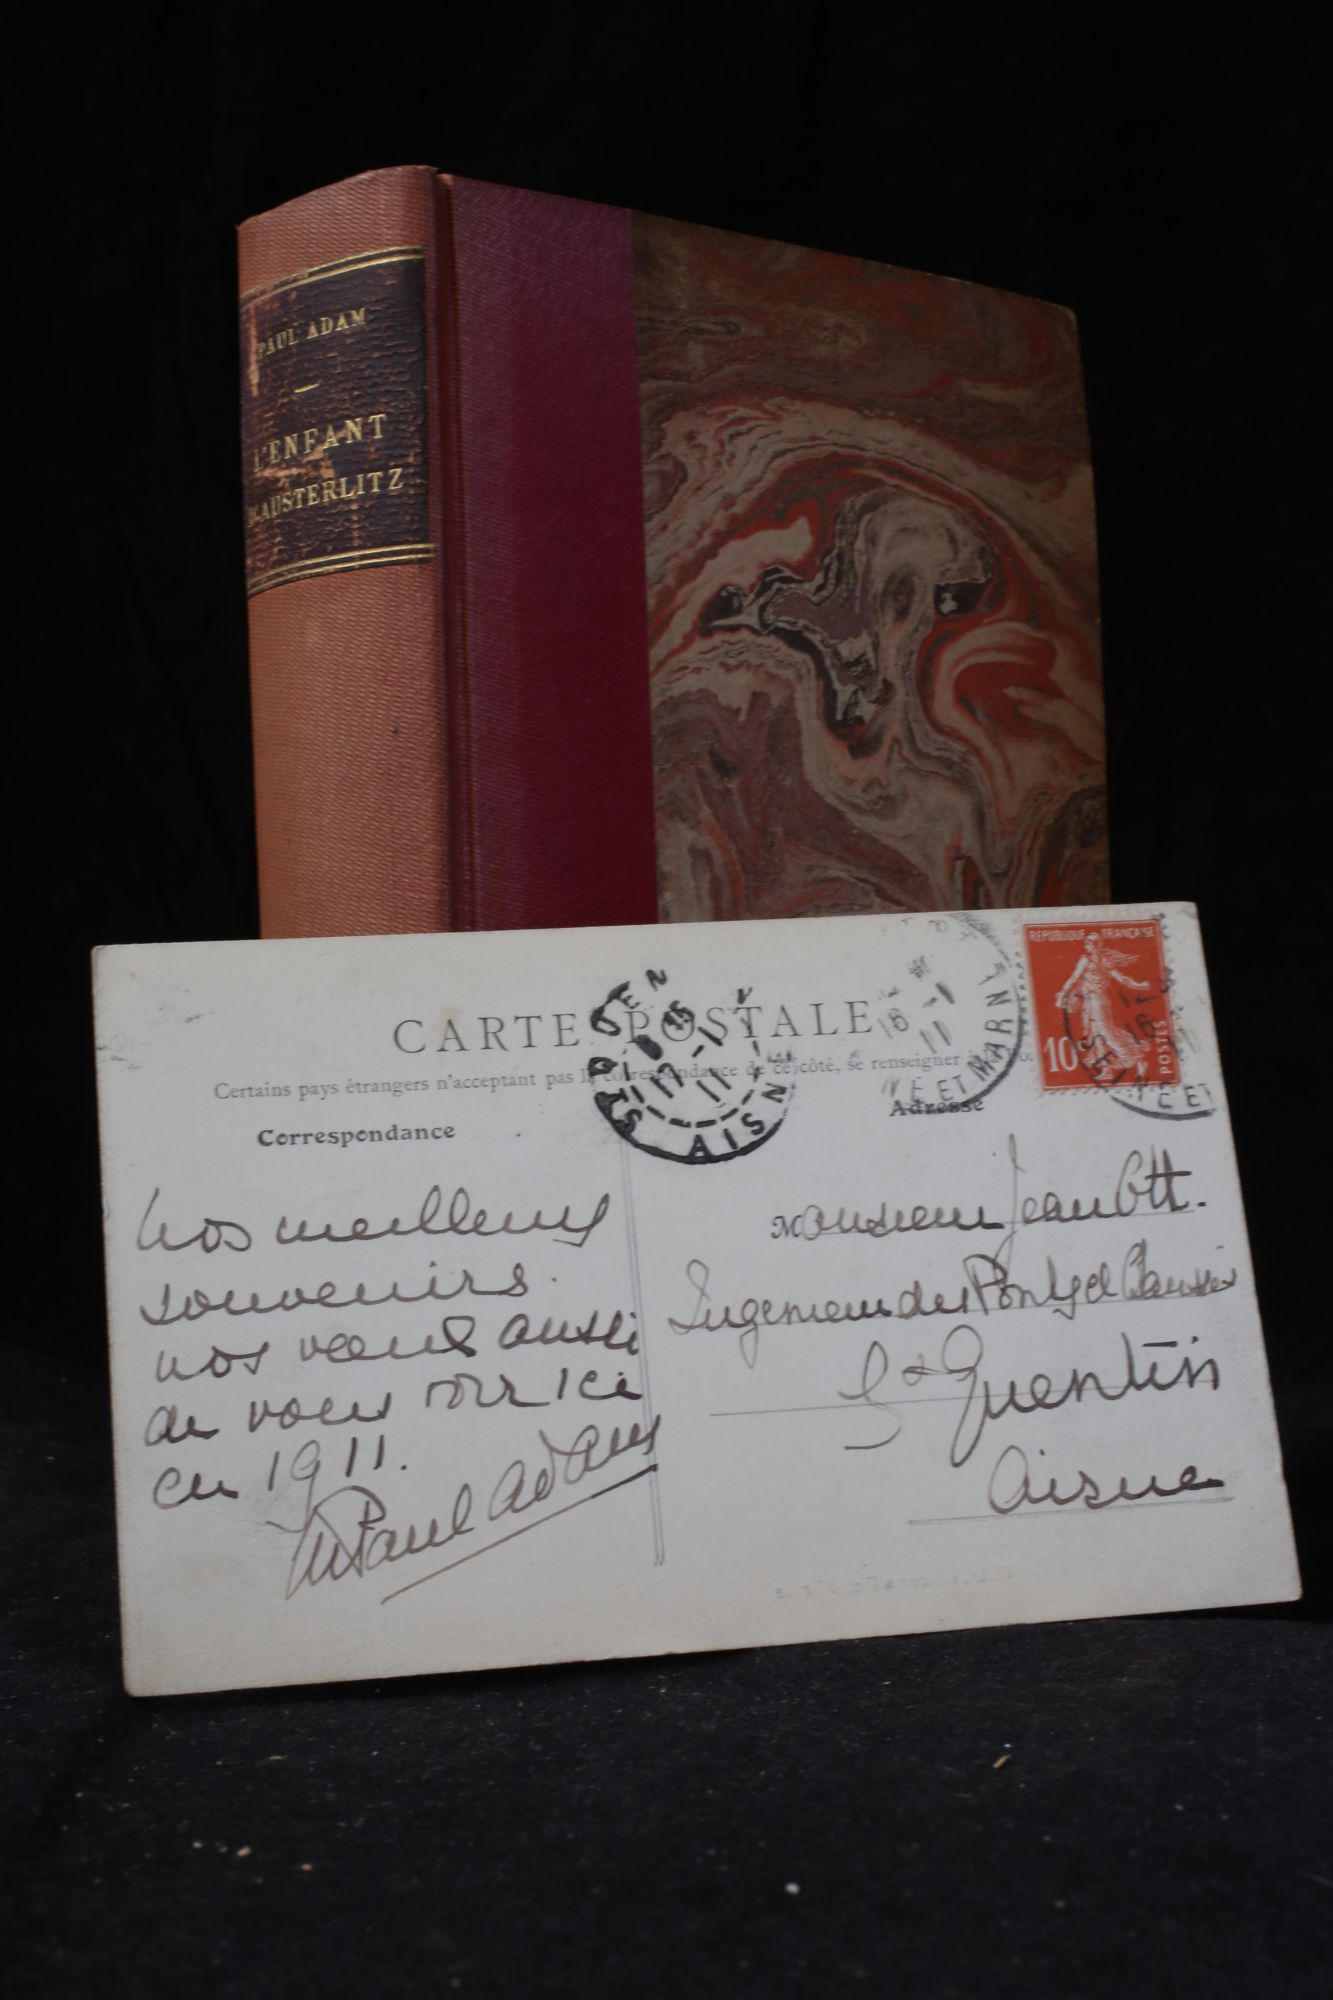 PAUL ADAM
L'ENFANT
D'AUSTERLITZ
CARTE POSTALE
Certains pays étrangers n'acceptent pas la correspondance de ce côté, se renseigner à la
Correspondance
Adresse
REPUBLIQUE FRANÇAISE
10
POSTES
ST QUENTIN
17-1
11
AISNE
16-1
11
SEINE ET MARNE
16-1
11
SEINE ET
Nos meilleurs
souvenirs.
nos vœux aussi
de vous voir ici
en 1911.
Paul Adam
Monsieur Jean Ott.
Ingénieur des Ponts et Chaussées
St Quentin
Aisne